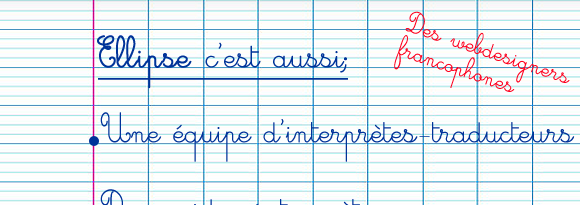 Ellipse c'est aussi;
Des webdesigners
francophones
Une équipe d'interprètes-traducteurs